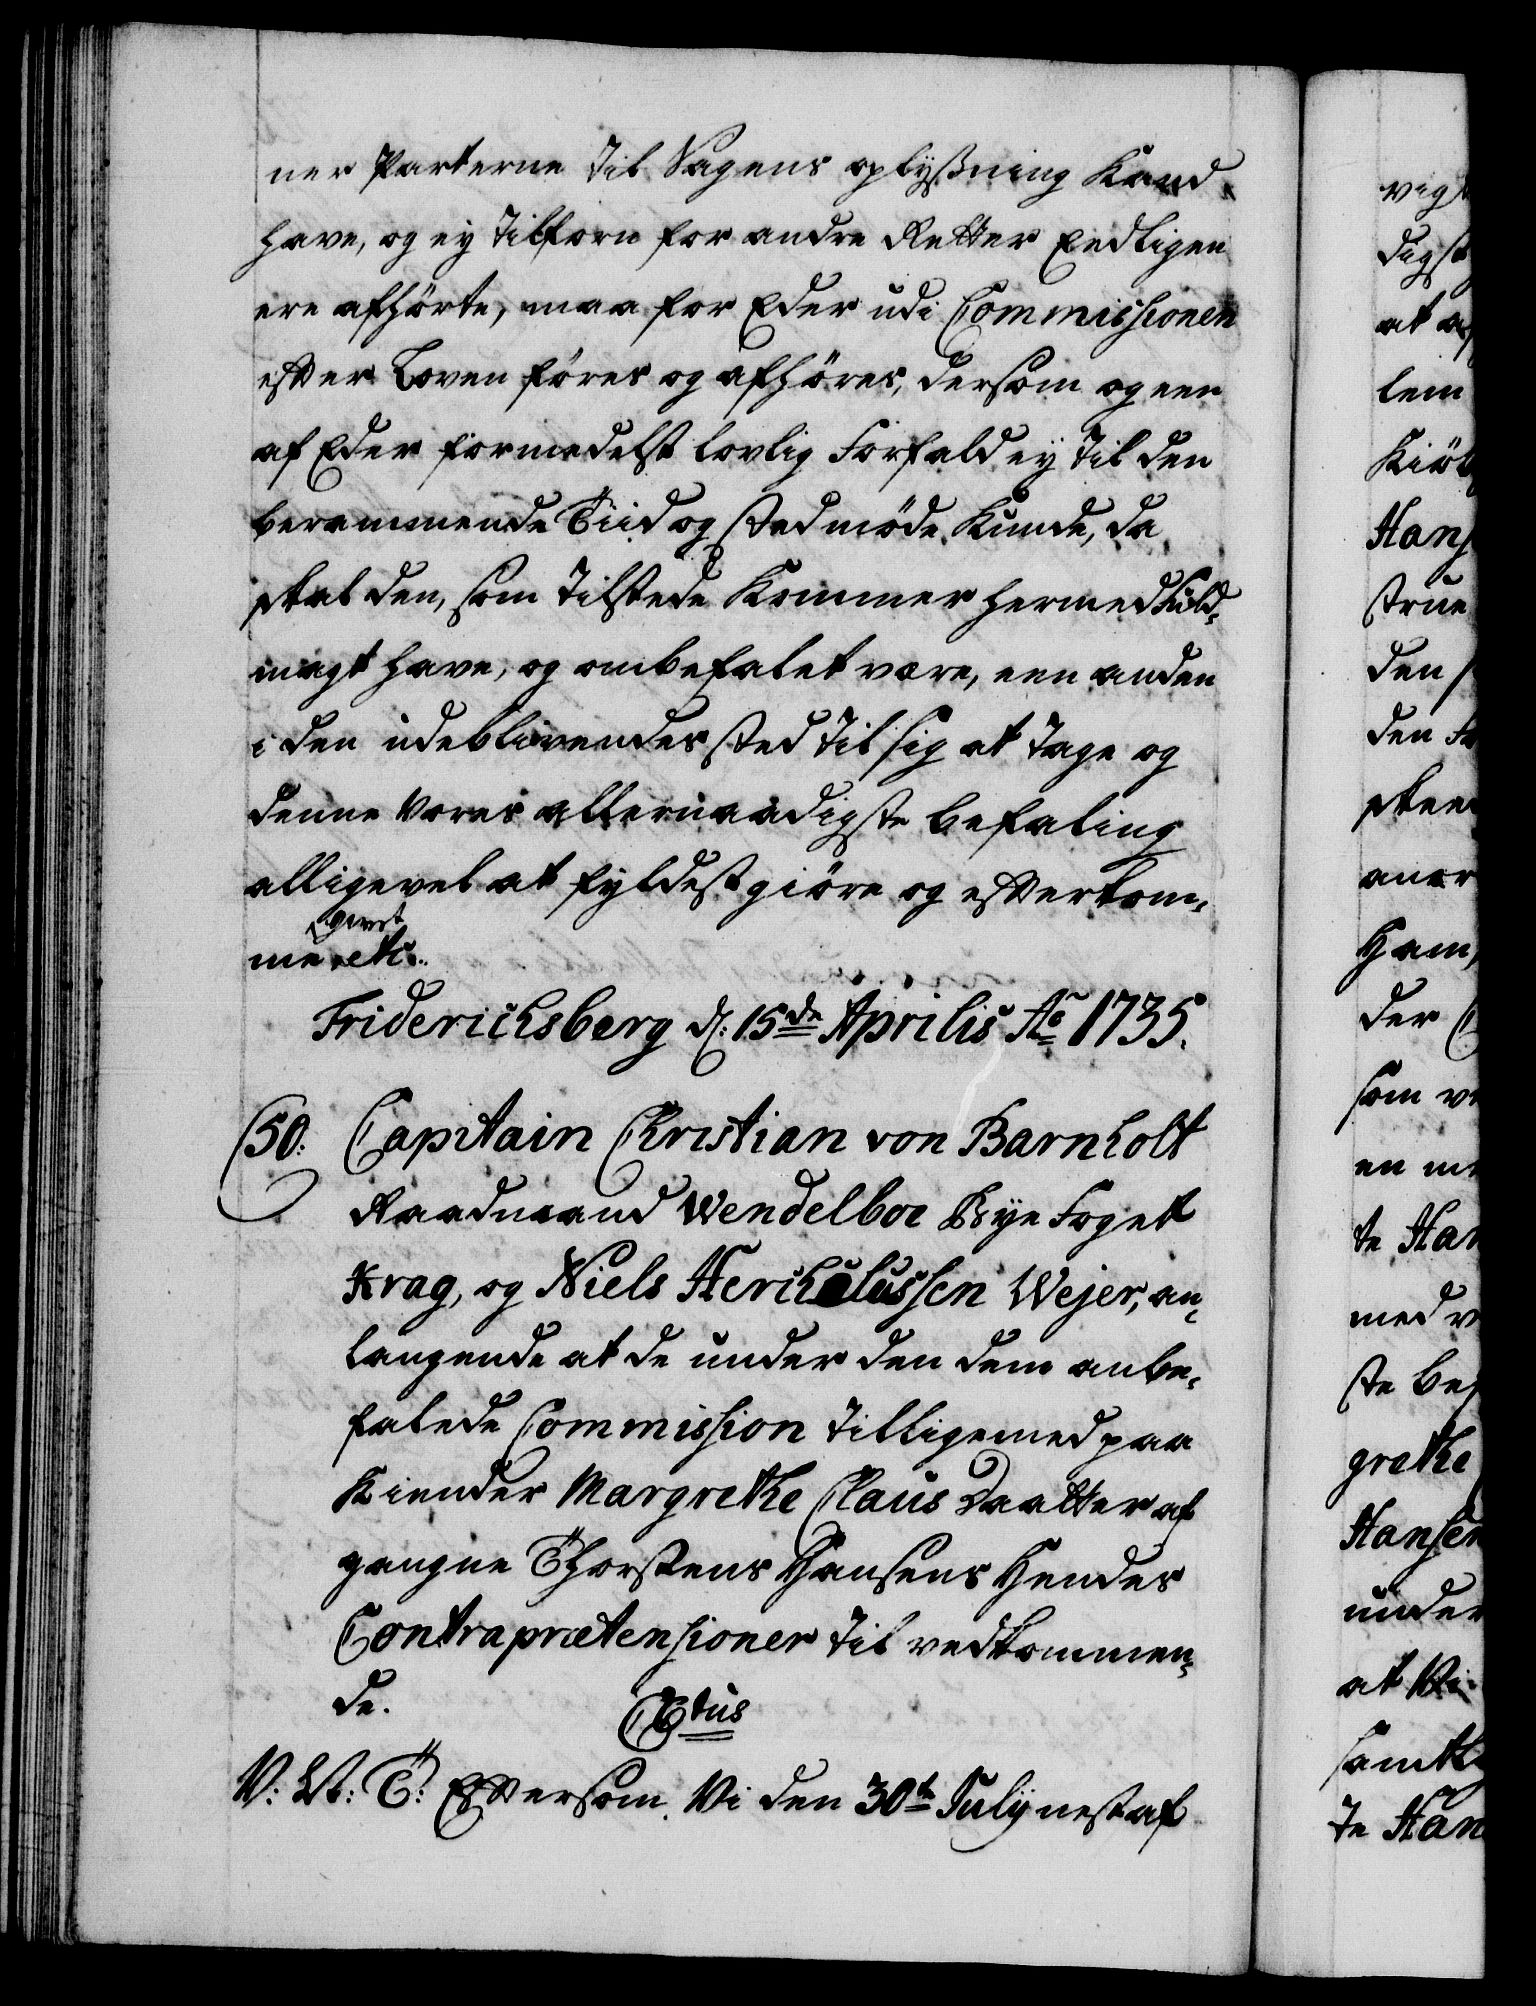 ner Parterne til Sagens oplyßning Kand
have, og ey tilforn for andre Retter Endligen
ere afhörte, maa for Eder udi Commissionen
efter Loven föres og afhöres, dersom og een
af Eder formedelst lovlig Forfald ey til den
berammende Tiid og sted möde Kunde, da
skal den, som tilstede Kommer hermed Fuld-
magt have, og ombefalet være, een anden
i den udeblivendes sted til sig at tage og
denne Vores allernaadigste befaling
alligevel at fyldestgiöre og efterkom-
me etc.
Friderichsberg d: 15de Aprilis Ao 1735.
50: Capitain Christian von Barnholt
Raadmand Wendelboe Bye Foget
Krag, og Niels Wejer, an-
langende at de under den dem anbe-
falede Commission tilligemed paa
Kiender Margrethe Claus Daatter af
gangne Thorstens Hansens Hendes
Contraprætensioner til vedkommen-
de. Ctus
V: G: T: Eftersom Vi den 30te Julij nestaf
vig
digst
at a
lem
Kiöb
Hans
strue
den
den
skee
aner
Ham,
der
som
en
te Han
med
ste be
grethe
Hansen
under
at Vi
samtl
te Han